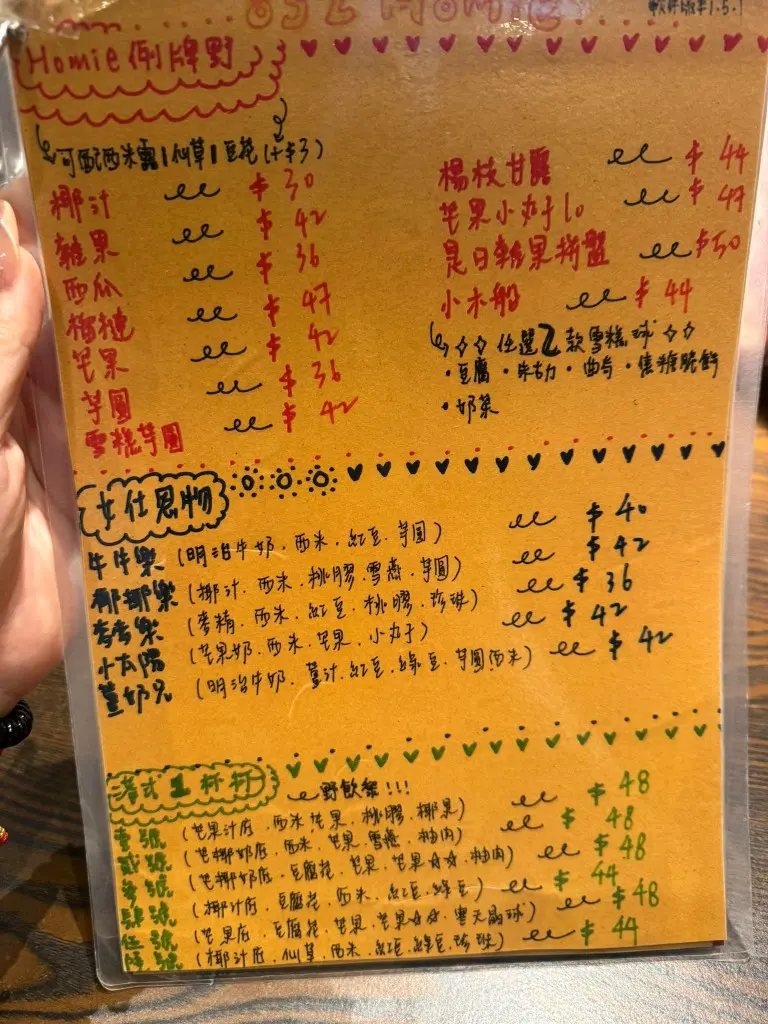 Homie 例牌野
可配西米露/仙草/豆花(+$3)
椰汁 $30
雜果 $42
西瓜 $36
榴槤 $47
芒果 $42
芋圓 $36
雪糕芋圓 $42
楊枝甘露 $44
芒果小丸子 $47
是日雜果拼盤 $50
小木船 $44
任選2款雪糕球
·豆腐·朱古力·曲奇·焦糖脆餅
·奶茶
女仕恩物
牛牛樂(明治牛奶.西米.紅豆.芋圓) $40
椰椰樂(椰汁.西米.桃膠.雪燕.芋圓) $42
麥麥樂(麥精.西米.紅豆.桃膠.珍珠) $36
小太陽(芒果奶.西米.芒果.小丸子) $42
薑奶兄(明治牛奶.薑汁.紅豆.綠豆.芋圓西米) $42
港式1杯杯
野飲架!!!
壹號(芒果汁底.西米.芒果.桃膠.椰果) $48
貳號(芒椰奶底.西米.芒果.雪燕.柚肉) $48
參號(芒椰奶底.豆腐花.芒果.芒果.柚肉) $48
肆號(椰汁底.豆腐花.西米.紅豆.綠豆) $44
伍號(芒果底.豆腐花.芒果.芒果.球) $48
陸號(椰汁底.仙草.西米.紅豆.綠豆.珍珠) $44